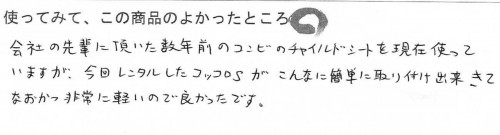 使ってみて、この商品のよかったところ
会社の先輩に頂いた数年前のコンビのチャイルドシートを現在使って
いますが、今回レンタルしたコッコロSが こんなに簡単に取り付け出来きて
なおかつ非常に軽いので良かったです。